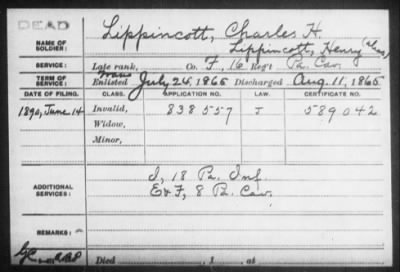 DEAD
Lippincott, Charles H.
NAME OF SOLDIER:
Lippincott, Henry (alias)
SERVICE: Late rank, Co. F, 16 Reg't Pa. Cav.
Trans
TERM OF SERVICE: Enlisted July 24, 1865 Discharged Aug. 11, 1865
DATE OF FILING. CLASS. APPLICATION NO. LAW. CERTIFICATE NO.
1890, June 14 Invalid, 838557 J 589042
Widow,
Minor,
ADDITIONAL SERVICES:
I, 18 Pa. Inf.
E & F, 8 Pa. Cav.
REMARKS:
Died , 1 , at